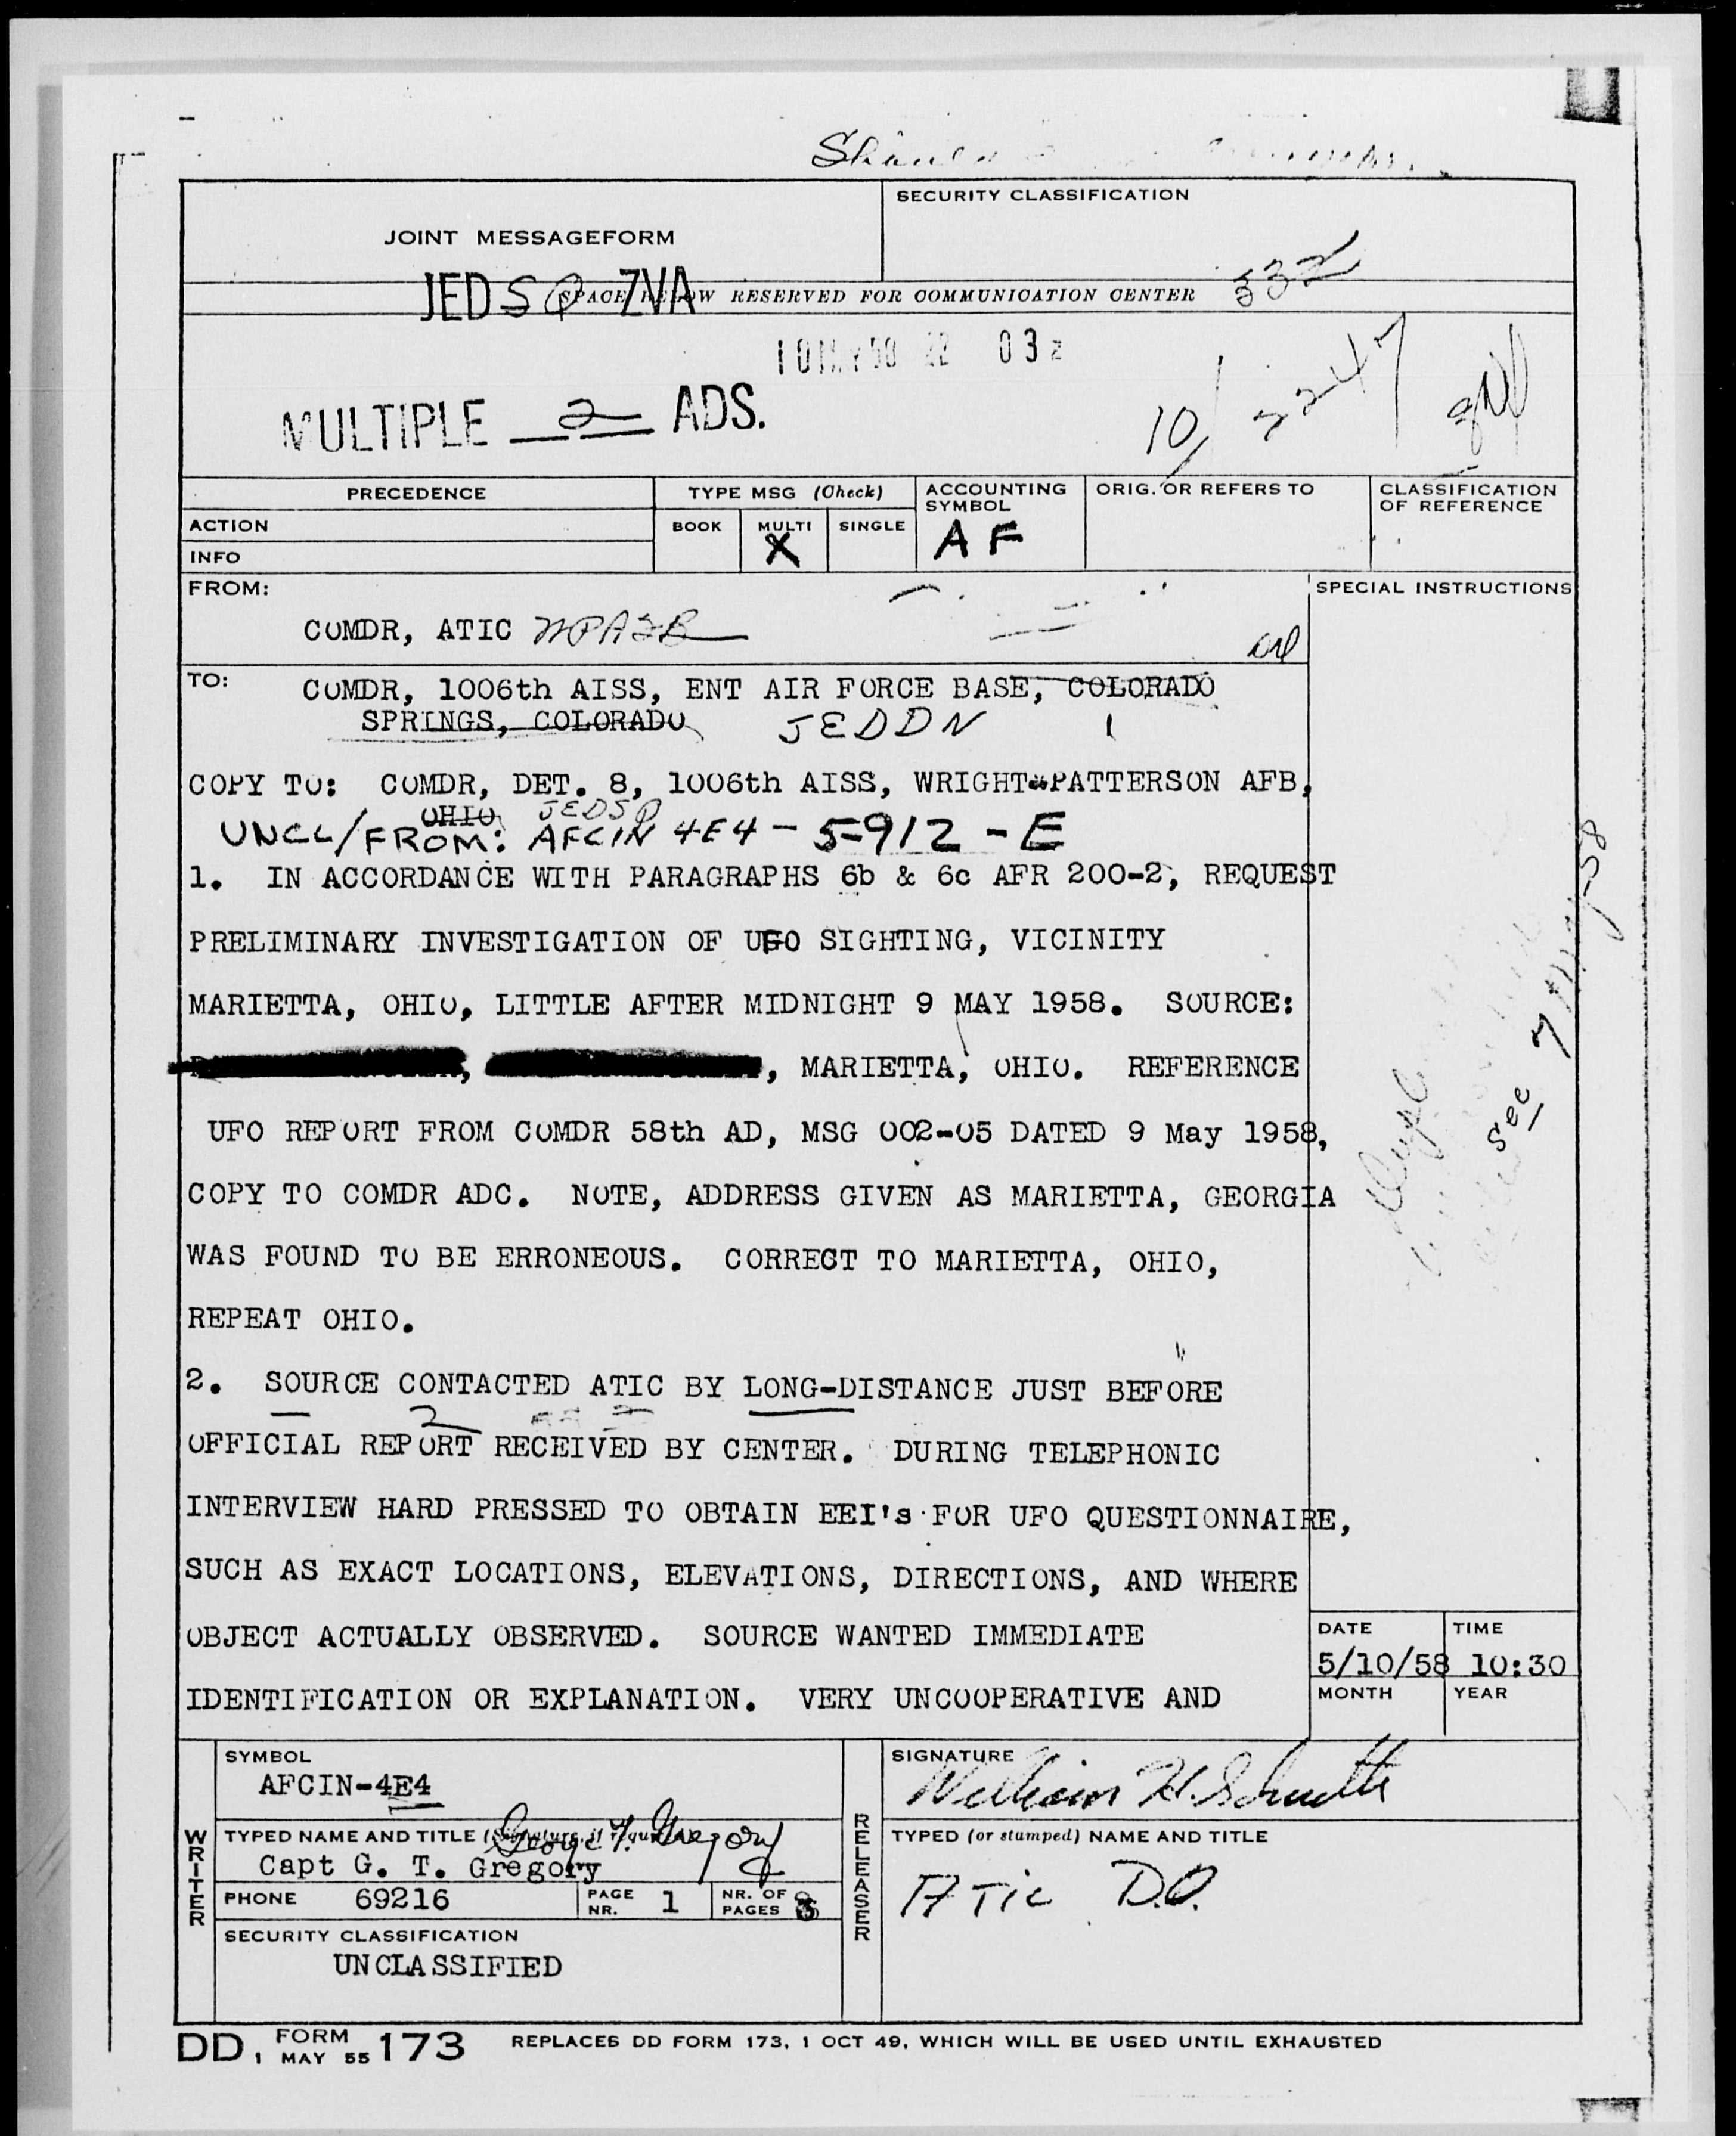 SECURITY CLASSIFICATION
JOINT MESSAGEFORM
JEDSP ZVA
SPACE BELOW RESERVED FOR COMMUNICATION CENTER
532
03z
10/ 2247
MULTIPLE 2 ADS.
PRECEDENCE
TYPE MSG (Check)
ACCOUNTING SYMBOL
ORIG. OR REFERS TO
CLASSIFICATION OF REFERENCE
ACTION
BOOK MULTI SINGLE
X
AF
INFO
FROM:
SPECIAL INSTRUCTIONS
COMDR, ATIC WPAFB
TO:
COMDR, 1006th AISS, ENT AIR FORCE BASE, COLORADO
SPRINGS, COLORADO JEDDN
COPY TO: COMDR, DET. 8, 1006th AISS, WRIGHT-PATTERSON AFB,
OHIO JEDSP
UNCL/FROM: AFCIN 4E4-5-912-E
1. IN ACCORDANCE WITH PARAGRAPHS 6b & 6c AFR 200-2, REQUEST
PRELIMINARY INVESTIGATION OF UFO SIGHTING, VICINITY
MARIETTA, OHIO, LITTLE AFTER MIDNIGHT 9 MAY 1958. SOURCE:
, , MARIETTA, OHIO. REFERENCE
UFO REPORT FROM COMDR 58th AD, MSG 002-05 DATED 9 May 1958,
COPY TO COMDR ADC. NOTE, ADDRESS GIVEN AS MARIETTA, GEORGIA
WAS FOUND TO BE ERRONEOUS. CORRECT TO MARIETTA, OHIO,
REPEAT OHIO.
See 7 May-58
2. SOURCE CONTACTED ATIC BY LONG-DISTANCE JUST BEFORE
OFFICIAL REPORT RECEIVED BY CENTER. DURING TELEPHONIC
INTERVIEW HARD PRESSED TO OBTAIN EEI's FOR UFO QUESTIONNAIRE,
SUCH AS EXACT LOCATIONS, ELEVATIONS, DIRECTIONS, AND WHERE
OBJECT ACTUALLY OBSERVED. SOURCE WANTED IMMEDIATE
IDENTIFICATION OR EXPLANATION. VERY UNCOOPERATIVE AND
DATE TIME
5/10/58 10:30
MONTH YEAR
WRITER
SYMBOL
AFCIN-4E4
TYPED NAME AND TITLE (Signature, if required)
George T. Gregory
Capt G. T. Gregory
PHONE 69216
PAGE NR. 1
NR. OF PAGES 3
SECURITY CLASSIFICATION
UNCLASSIFIED
RELEASER
SIGNATURE
William H. Schutte
TYPED (or stamped) NAME AND TITLE
ATIC D.O.
DD, FORM 1 MAY 55 173 REPLACES DD FORM 173, 1 OCT 49, WHICH WILL BE USED UNTIL EXHAUSTED